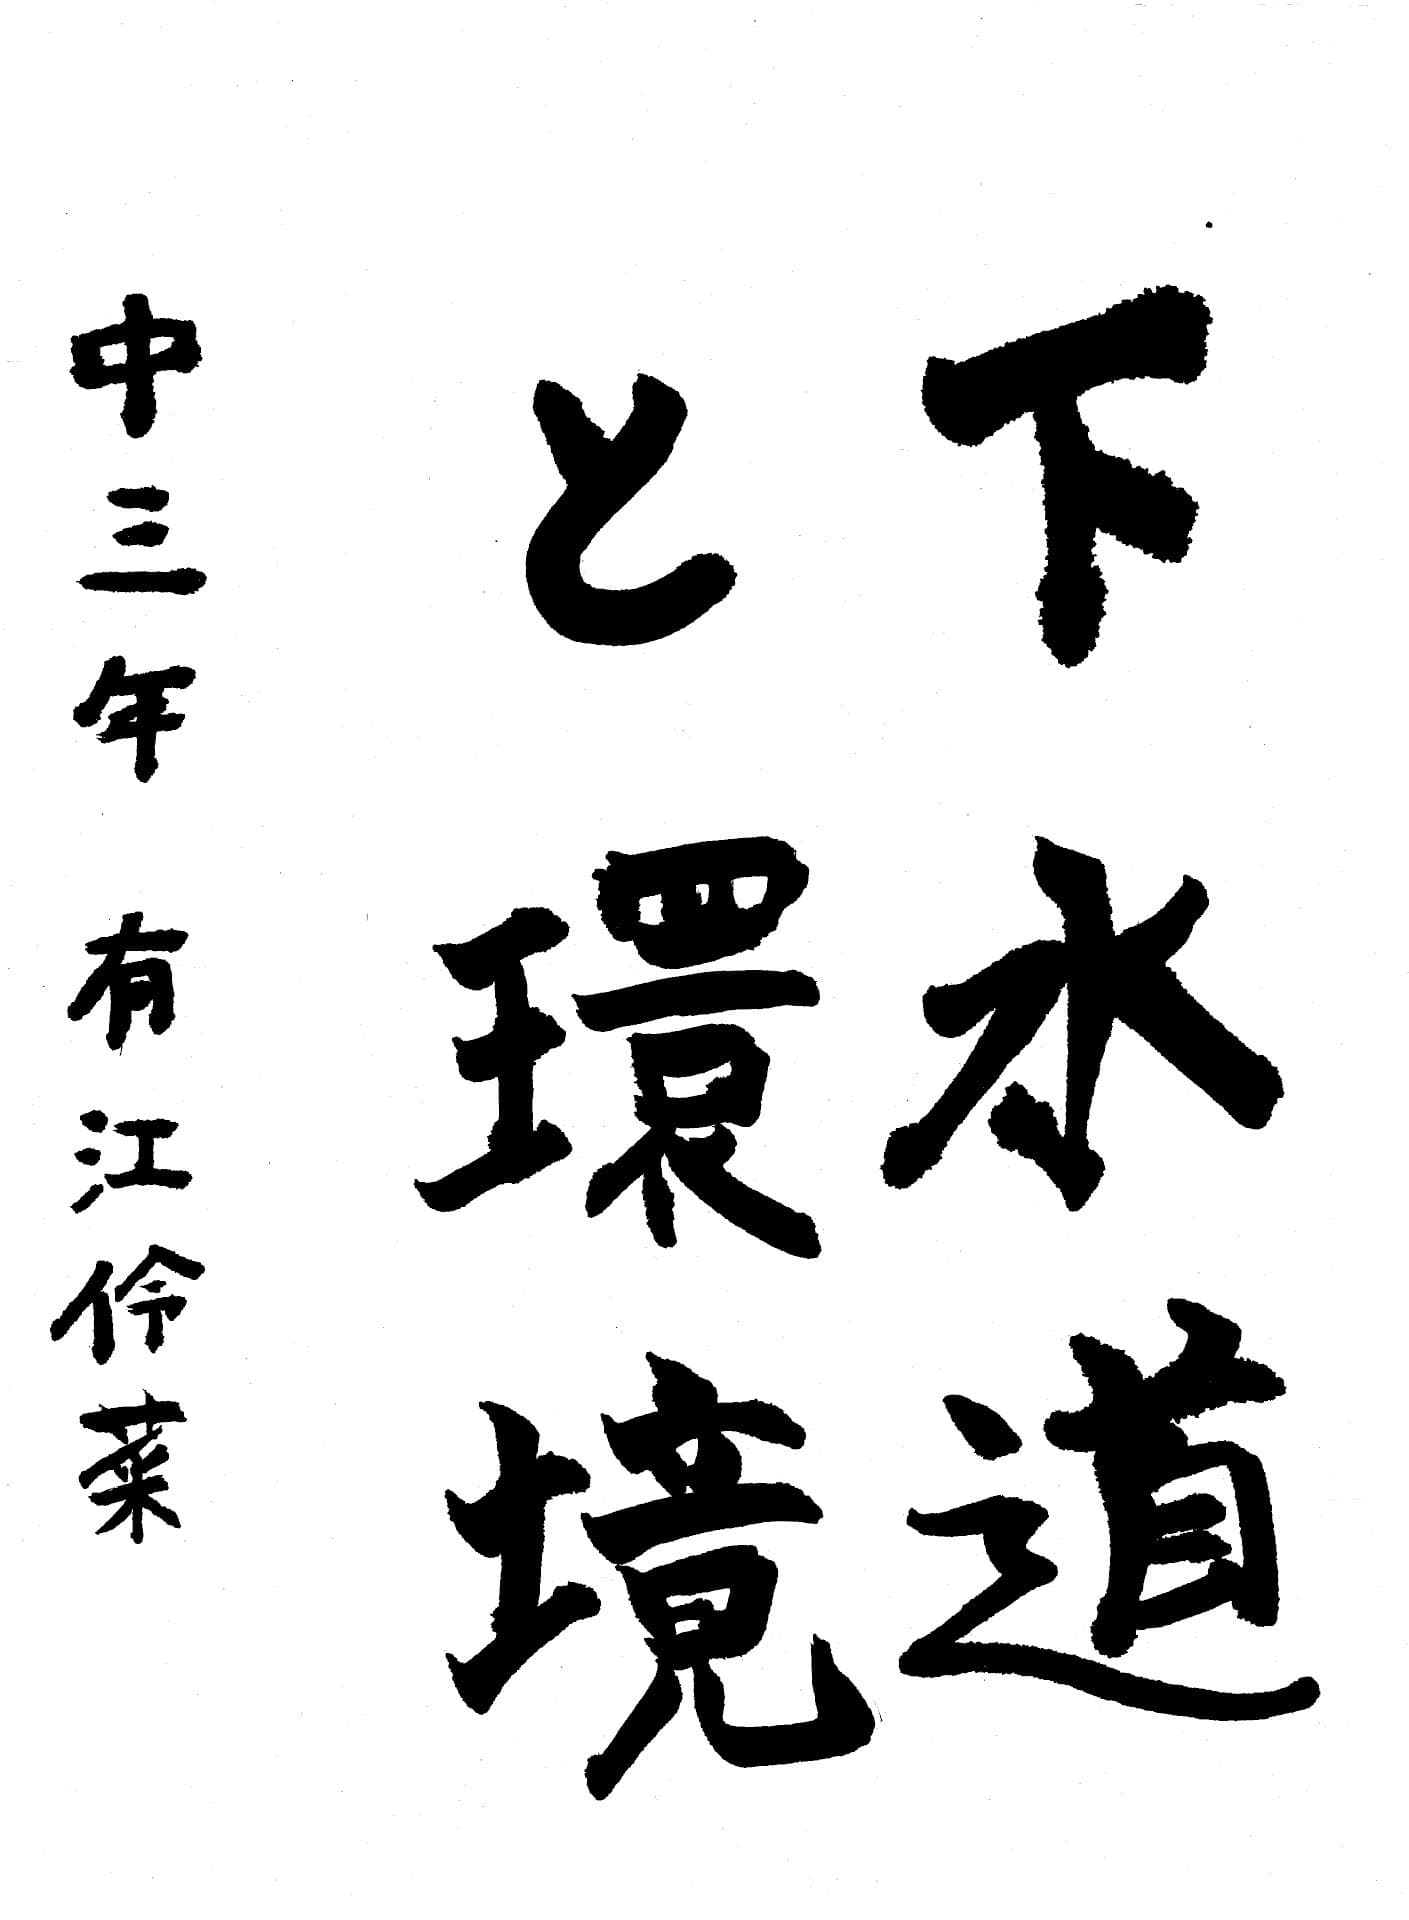 下水道
と環境
中三年 有江伶菜